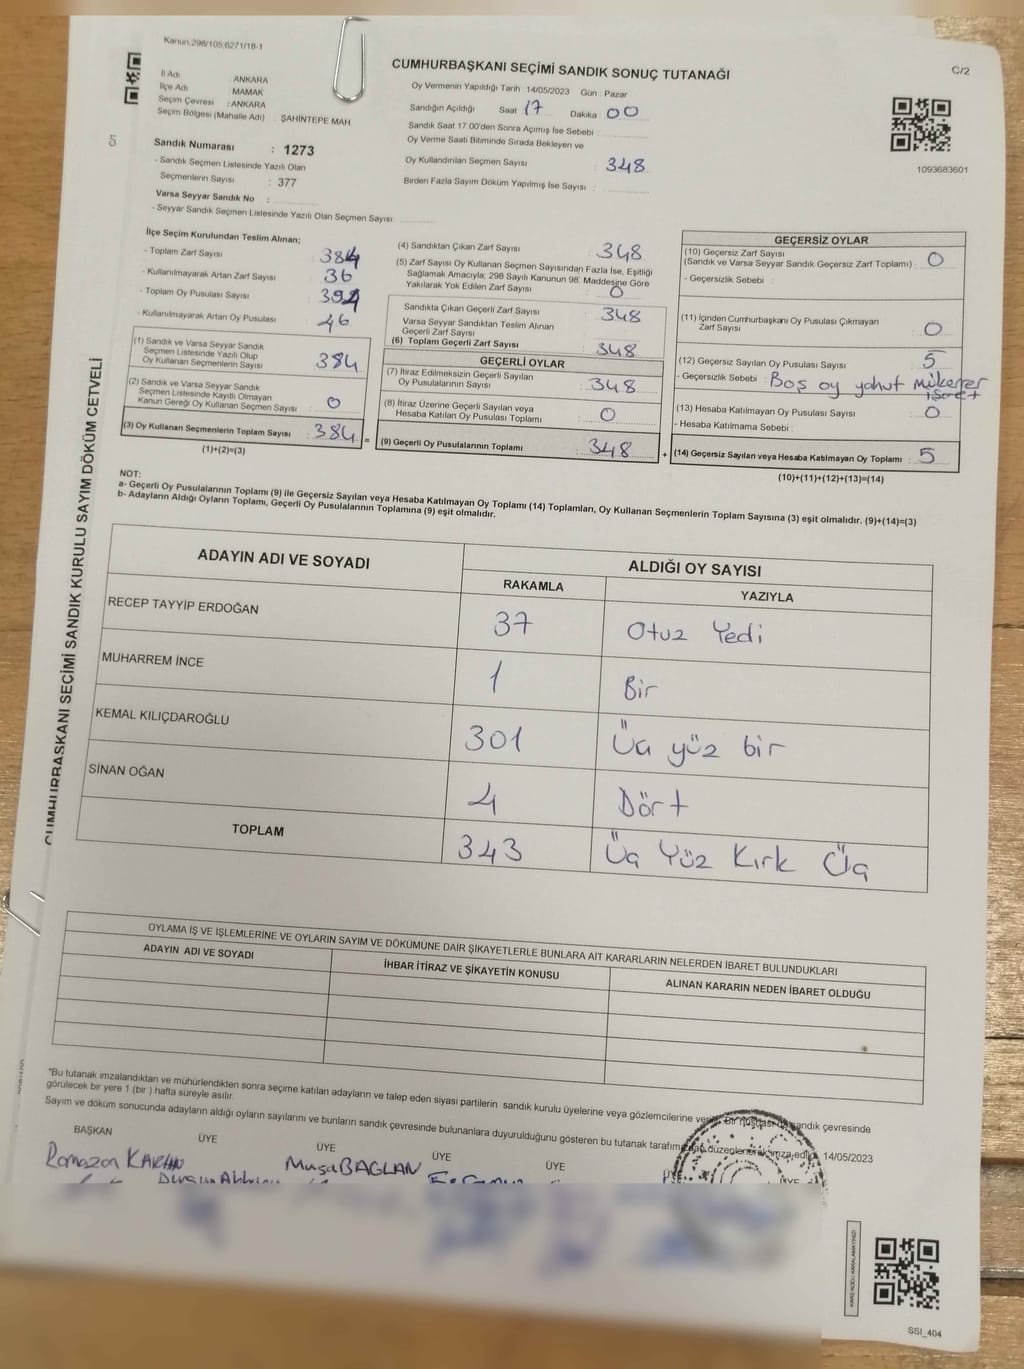 Kanun 298/105;6271/18-1
C/2
C/1
CUMHURBAŞKANI SEÇİMİ SANDIK SONUÇ TUTANAĞI
İl Adı ANKARA
İlçe Adı MAMAK
Seçim Çevresi : ANKARA
Seçim Bölgesi (Mahalle Adı) : ŞAHİNTEPE MAH
Oy Vermenin Yapıldığı Tarih 14/05/2023 Gün : Pazar
Sandığın Açıldığı Saat 17 Dakika 00
Sandık Saat 17.00'den Sonra Açımış İse Sebebi
Oy Verme Saati Bitiminde Sırada Bekleyen ve
Oy Kullandırılan Seçmen Sayısı : 348
Birden Fazla Sayım Döküm Yapılmış İse Sayısı :
1093683601
Sandık Numarası : 1273
- Sandık Seçmen Listesinde Yazılı Olan
Seçmenlerin Sayısı : 377
Varsa Seyyar Sandık No :
- Seyyar Sandık Seçmen Listesinde Yazılı Olan Seçmen Sayısı
İlçe Seçim Kurulundan Teslim Alınan;
- Toplam Zarf Sayısı 384
- Kullanılmayarak Artan Zarf Sayısı 36
- Toplam Oy Pusulası Sayısı 394
- Kullanılmayarak Artan Oy Pusulası 46
(1) Sandık ve Varsa Seyyar Sandık
Seçmen Listesinde Yazılı Olup
Oy Kullanan Seçmenlerin Sayısı 384
(2) Sandık ve Varsa Seyyar Sandık
Seçmen Listesinde Kayıtlı Olmayan
Kanun Gereği Oy Kullanan Seçmen Sayısı 0
(3) Oy Kullanan Seçmenlerin Toplam Sayısı : 384 =
(1)+(2)=(3)
(4) Sandıktan Çıkan Zarf Sayısı : 348
(5) Zarf Sayısı Oy Kullanan Seçmen Sayısından Fazla İse, Eşitliği
Sağlamak Amacıyla; 298 Sayılı Kanunun 98. Maddesine Göre
Yakılarak Yok Edilen Zarf Sayısı : 0
Sandıkta Çıkan Geçerli Zarf Sayısı : 348
Varsa Seyyar Sandıktan Teslim Alınan
Geçerli Zarf Sayısı
(6) Toplam Geçerli Zarf Sayısı : 348
GEÇERLİ OYLAR
(7) İtiraz Edilmeksizin Geçerli Sayılan
Oy Pusulalarının Sayısı : 348
(8) İtiraz Üzerine Geçerli Sayılan veya
Hesaba Katılan Oy Pusulası Toplamı : 0
(9) Geçerli Oy Pusulalarının Toplamı : 348 +
GEÇERSİZ OYLAR
(10) Geçersiz Zarf Sayısı
(Sandık ve Varsa Seyyar Sandık Geçersiz Zarf Toplamı) : 0
- Geçersizlik Sebebi :
(11) İçinden Cumhurbaşkanı Oy Pusulası Çıkmayan
Zarf Sayısı : 0
(12) Geçersiz Sayılan Oy Pusulası Sayısı : 5
- Geçersizlik Sebebi : Boş oy yahut mükerrer
işaret
(13) Hesaba Katılmayan Oy Pusulası Sayısı : 0
- Hesaba Katılmama Sebebi :
(14) Geçersiz Sayılan veya Hesaba Katılmayan Oy Toplamı : 5
(10)+(11)+(12)+(13)=(14)
NOT:
a- Geçerli Oy Pusulalarının Toplamı (9) ile Geçersiz Sayılan veya Hesaba Katılmayan Oy Toplamı (14) Toplamları, Oy Kullanan Seçmenlerin Toplam Sayısına (3) eşit olmalıdır. (9)+(14)=(3)
b- Adayların Aldığı Oyların Toplamı, Geçerli Oy Pusulalarının Toplamına (9) eşit olmalıdır.
CUMHURBAŞKANI SEÇİMİ SANDIK KURULU SAYIM DÖKÜM CETVELİ
ADAYIN ADI VE SOYADI ALDIĞI OY SAYISI
RAKAMLA YAZIYLA
RECEP TAYYİP ERDOĞAN 37 Otuz Yedi
MUHARREM İNCE 1 Bir
KEMAL KILIÇDAROĞLU 301 Üç yüz bir
SİNAN OĞAN 4 Dört
TOPLAM 343 Üç Yüz Kırk Üç
OYLAMA İŞ VE İŞLEMLERİNE VE OYLARIN SAYIM VE DÖKÜMÜNE DAİR ŞİKAYETLERLE BUNLARA AİT KARARLARIN NELERDEN İBARET BULUNDUKLARI
ADAYIN ADI VE SOYADI İHBAR İTİRAZ VE ŞİKAYETİN KONUSU ALINAN KARARIN NEDEN İBARET OLDUĞU
*Bu tutanak imzalandıktan ve mühürlendikten sonra seçime katılan adayların ve talep eden siyasi partilerin sandık kurulu üyelerine veya gözlemcilerine bir sandık çevresinde
görülecek bir yere 1 (bir) hafta süreyle asılır.
Sayım ve döküm sonucunda adayların aldığı oyların sayılarını ve bunların sandık çevresinde bulunanlara duyurulduğunu gösteren bu tutanak düzenlenerek imza edildi. 14/05/2023
BAŞKAN ÜYE ÜYE ÜYE ÜYE ÜYE
Ramazan Musa BAĞLAN
SSI_404